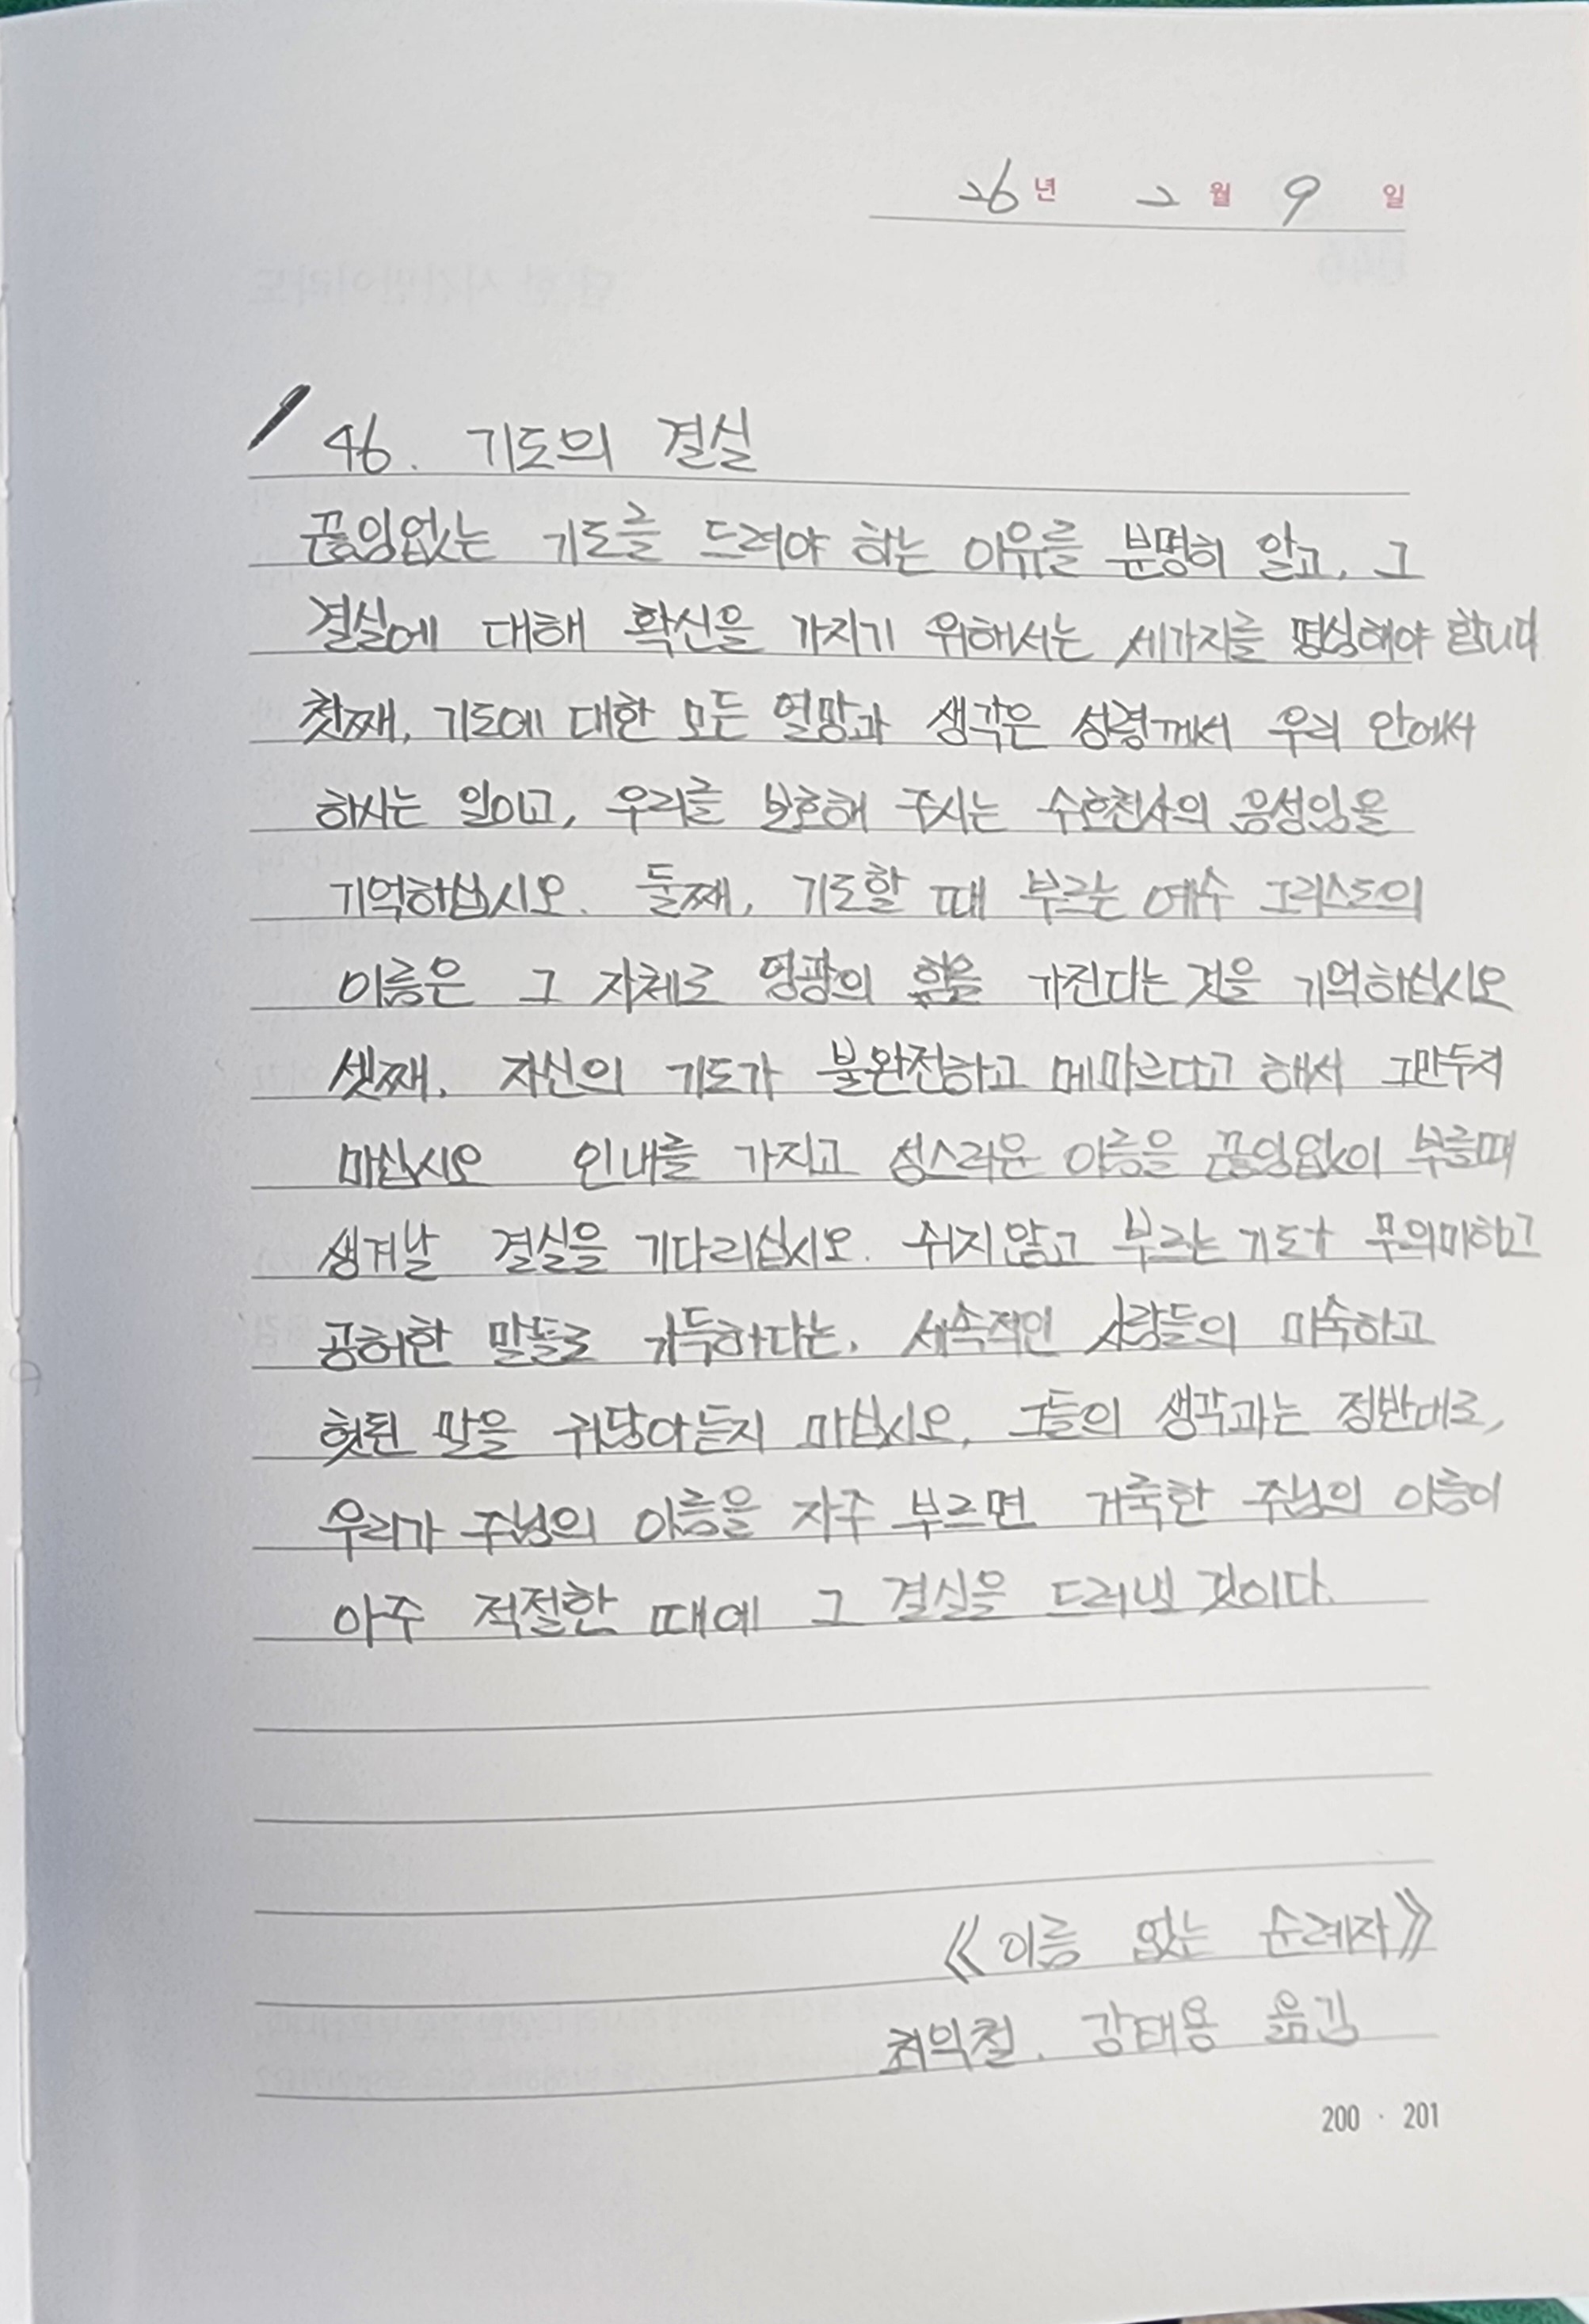 26년 2월 9일
46. 기도의 결실
끊임없는 기도를 드려야 하는 이유를 분명히 알고, 그
결실에 대해 확신을 가지기 위해서는 세가지를 명심해야 합니다
첫째, 기도에 대한 모든 열망과 생각은 성령께서 우리 안에서
하시는 일이고, 우리를 보호해 주시는 수호천사의 음성임을
기억하십시오. 둘째, 기도할 때 부르는 예수 그리스도의
이름은 그 자체로 영광의 힘을 가진다는 것을 기억하십시오
셋째, 자신의 기도가 불완전하고 메마르다고 해서 그만두지
마십시오 인내를 가지고 성스러운 이름을 끊임없이 부를때
생겨날 결실을 기다리십시오. 쉬지않고 부르는 기도가 무의미하고
공허한 말들로 가득하다는, 세속적인 사람들의 미숙하고
헛된 말을 귀담아듣지 마십시오, 그들의 생각과는 정반대로,
우리가 주님의 이름을 자주 부르면 거룩한 주님의 이름이
아주 적절한 때에 그 결실을 드러낼 것이다.
《이름 없는 순례자》
최익철. 강태용 옮김
200 · 201